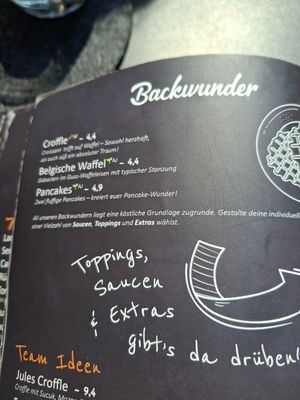 Backwunder
Croffle – 4,4
Croissant trifft auf Waffel – Sowohl herzhaft,
als auch süß ein absoluter Traum!
Belgische Waffel – 4,4
Gebacken im Guss-Waffeleisen mit typischer Stanzung
Pancakes – 4,9
Zwei fluffige Pancakes – kreiert euer Pancake-Wunder!
All unseren Backwundern liegt eine köstliche Grundlage zugrunde. Gestalte deine individue
einer Vielzahl von Saucen, Toppings und Extras wählst.
Toppings,
Saucen
& Extras
gibt's da drüben!
Team Ideen
Jules Croffle – 9,4
Croffle mit Sucuk, Mozza